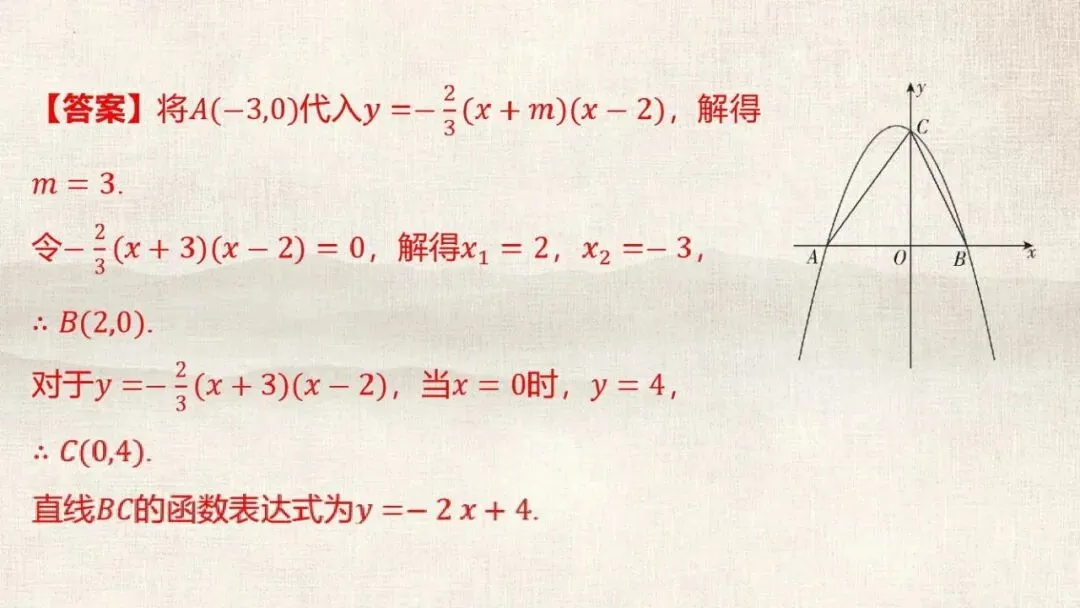 【答案】将A(−3,0)代入y =− 2/3 (x + m)(x − 2)，解得
m = 3.
令− 2/3 (x + 3)(x − 2) = 0，解得x₁ = 2，x₂ =− 3，
∴ B(2,0).
对于y =− 2/3 (x + 3)(x − 2)，当x = 0时，y = 4，
∴ C(0,4).
直线BC的函数表达式为y =− 2 x + 4.
y
C
A
O
B
x